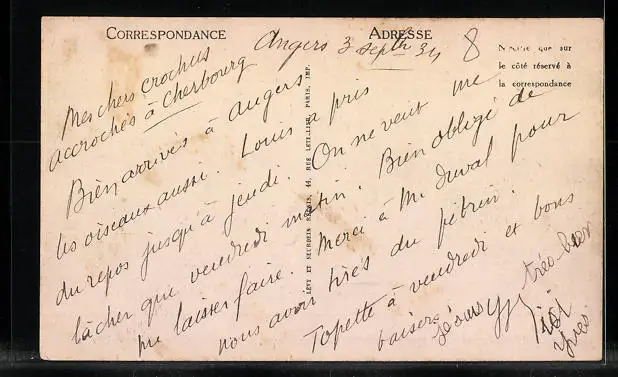 CORRESPONDANCE
ADRESSE
N'écrire que sur
le côté réservé à
la correspondance
Angers 3 septbre 34
8
Mes chers crochus
accrochés à Cherbourg
Bien arrivés à Angers
les oiseaux aussi. Louis a pris
du repos jusqu'à jeudi. On ne veut me
lâcher que vendredi matin. Bien obligé de
me laisser faire. Merci à Mr Duval pour
nous avoir tirés du pétrin.
Topette à vendredi et bons
baisers
très bien
LÉVY ET NEURDEIN RÉUNIS, 44, RUE LETELLIER, PARIS, IMP.